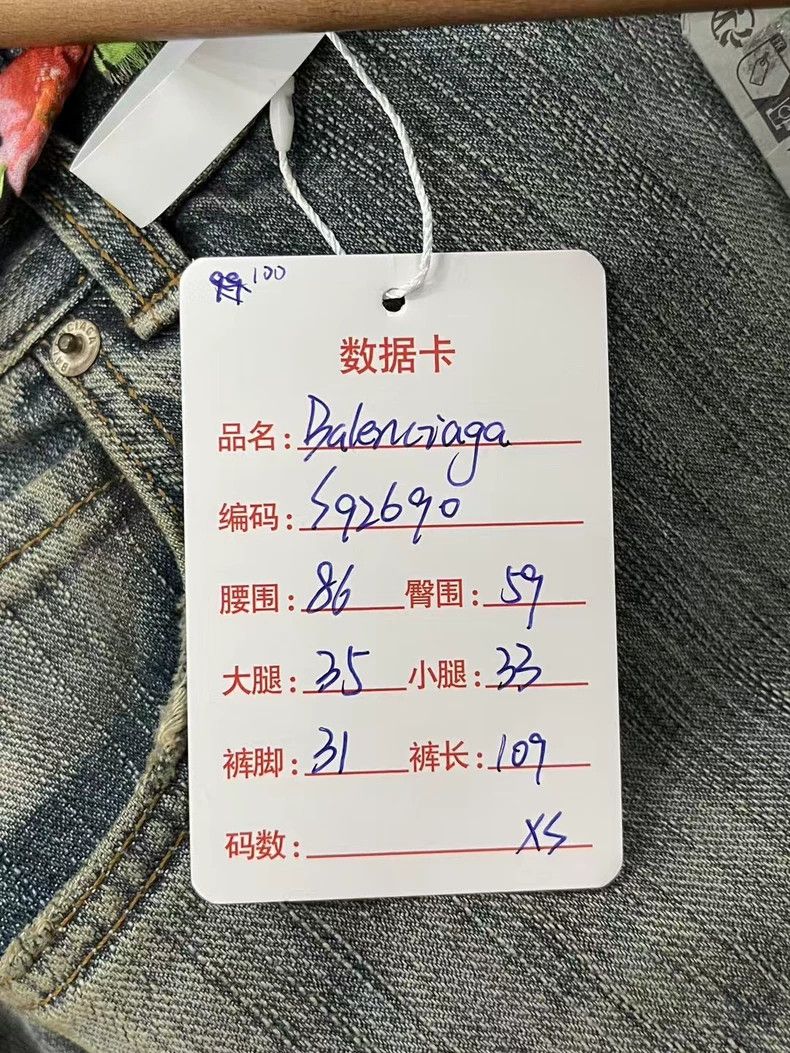 100
数据卡
品名：Balenciaga
编码：S92690
腰围：86 臀围：59
大腿：35 小腿：33
裤脚：31 裤长：109
码数：XS